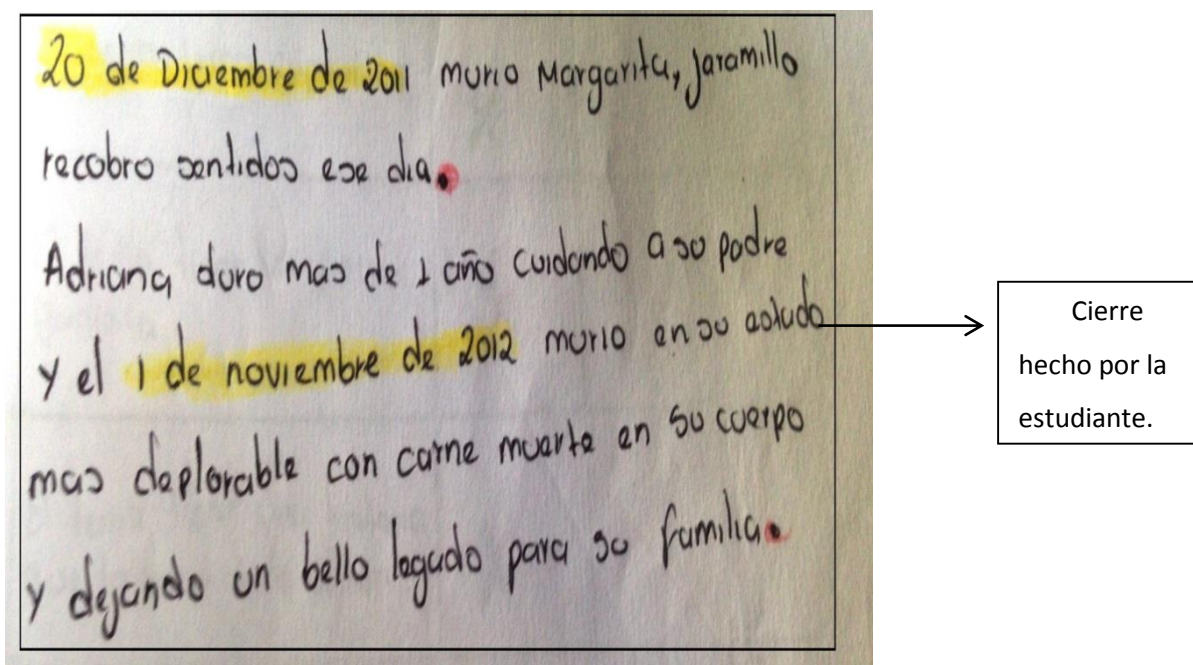 20 de Diciembre de 2011 murio Margarita, jaramillo
recobro sentidos ese dia.
Adriana duro mas de 1 año cuidando a su padre
y el 1 de noviembre de 2012 murio en su estado
mas deplorable con carne muerta en su cuerpo
y dejando un bello legado para su familia.
Cierre
hecho por la
estudiante.